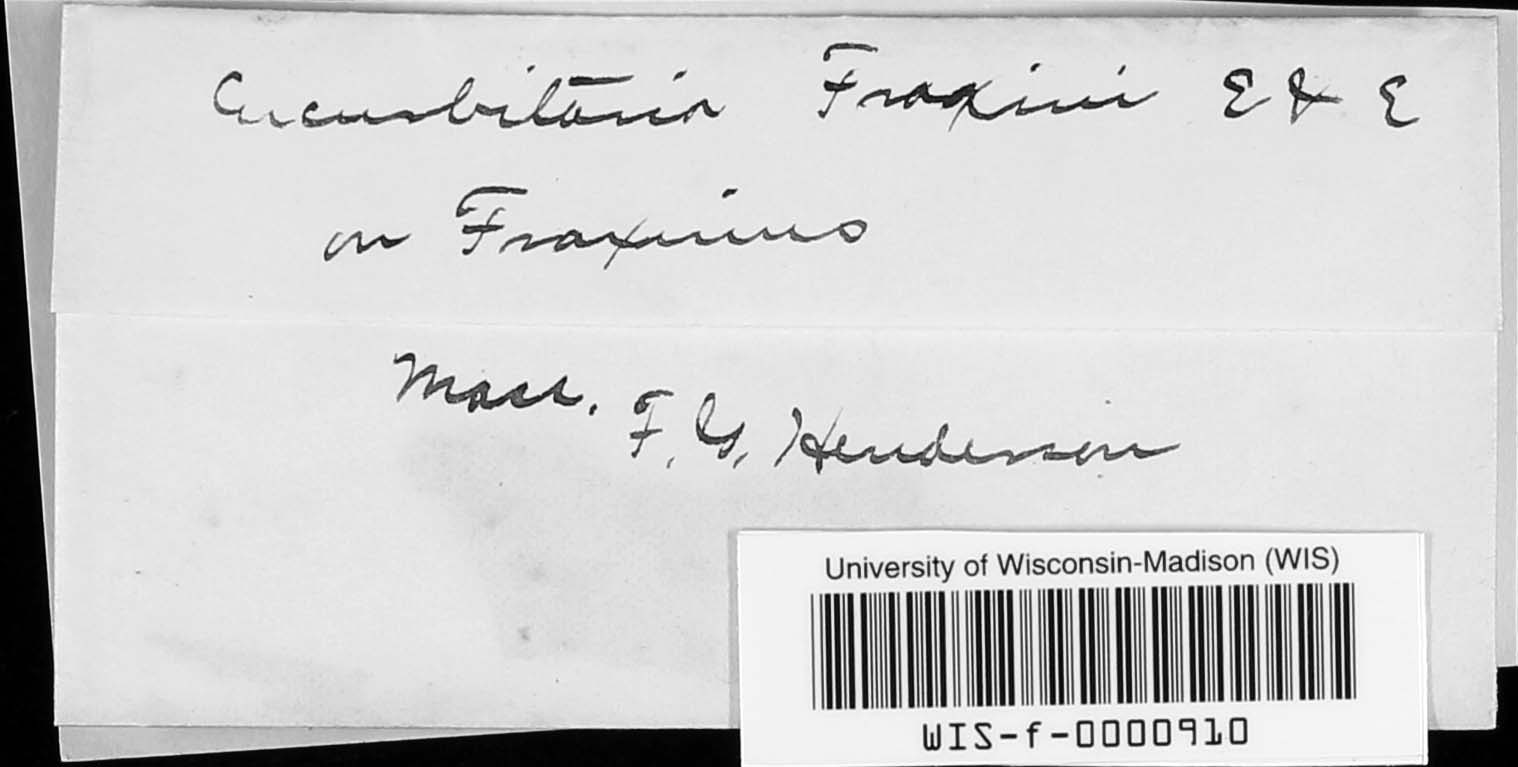 Cucurbitaria Fraxini E & E
on Fraxinus
Mass. F. G. Henderson
University of Wisconsin-Madison (WIS)
WIS-f-0000910